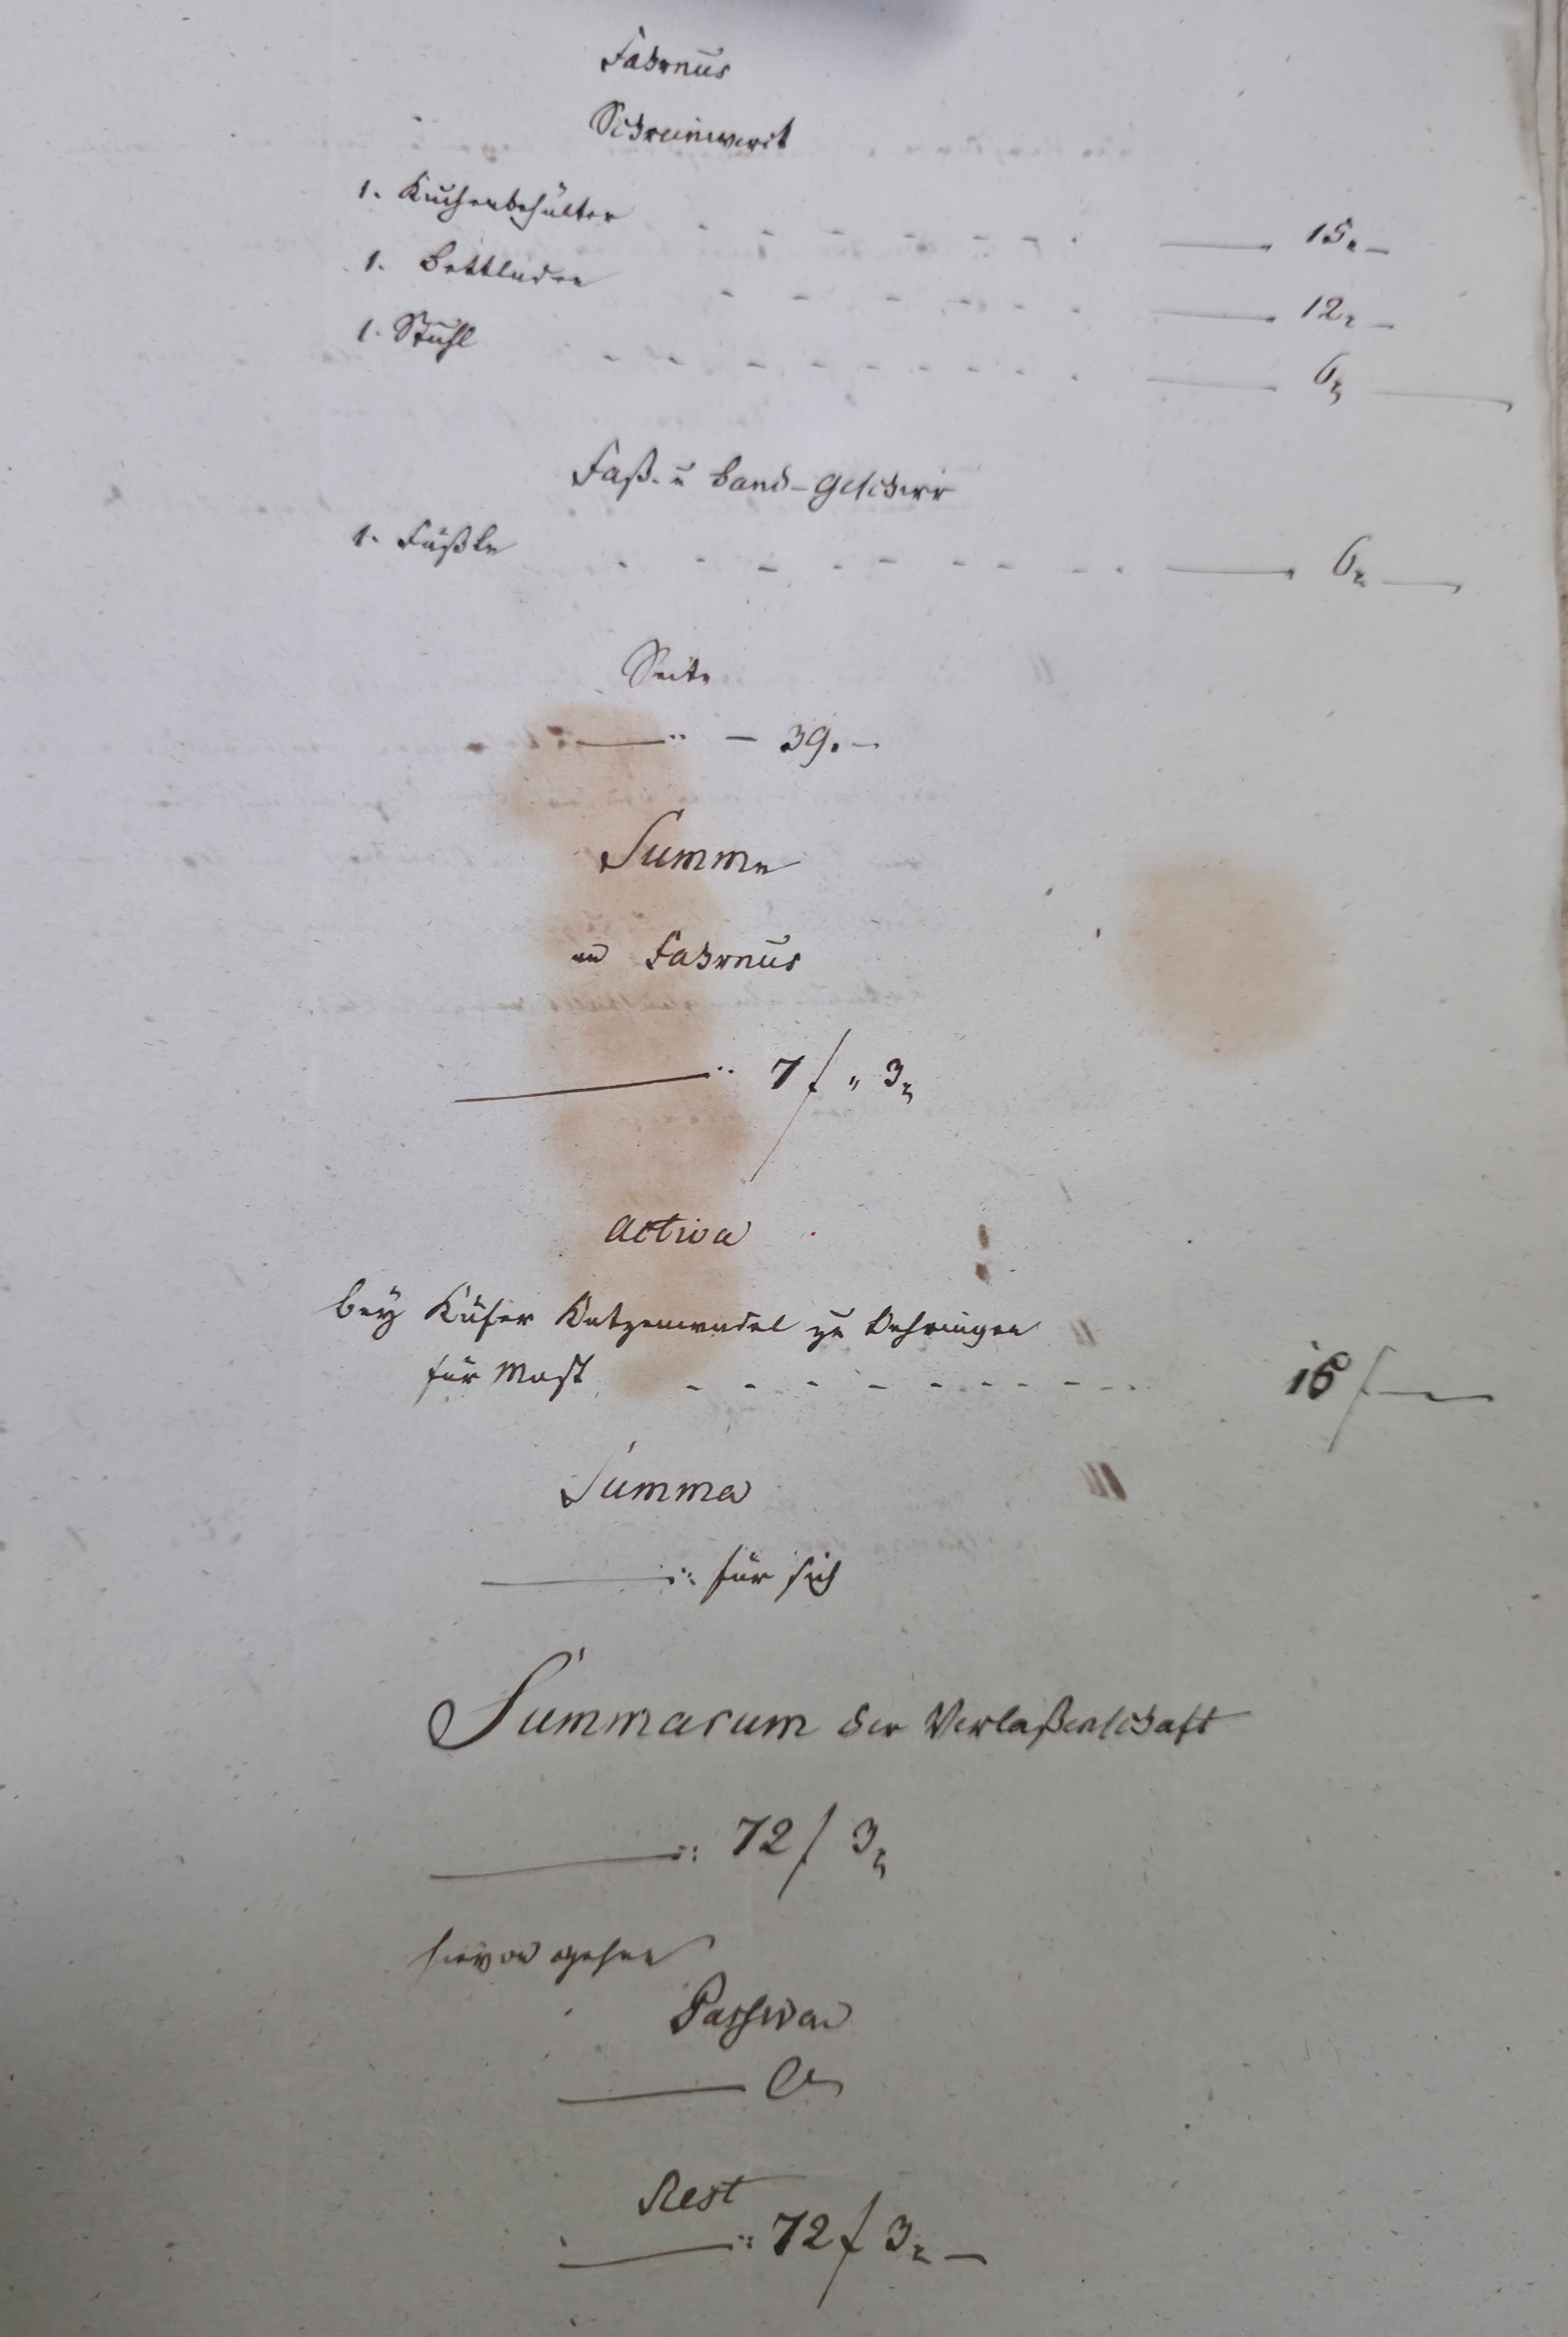 Fahrnus
Schreinwerk
1. Kuchenbehälter - - - - - - - — 15. -
1. Bettladen - - - - - - - — 12 -
1. Stuhl - - - - - - - - — 6 —
Faß- u Band-Geschirr
1. Fäßle - - - - - - - - — 6 —
Seite
— - 39. -
Summe
an Fahrnus
— 7 f " 3
Activa
bey Küfer Katzenwadel zu Oehringen
für Most - - - - - - - - - 16 f —
Summa
— für sich
Summarum der Verlaßenschaft
— 72 f 3
hievon gehen
Passiva
—
Rest
— 72 f 3 -